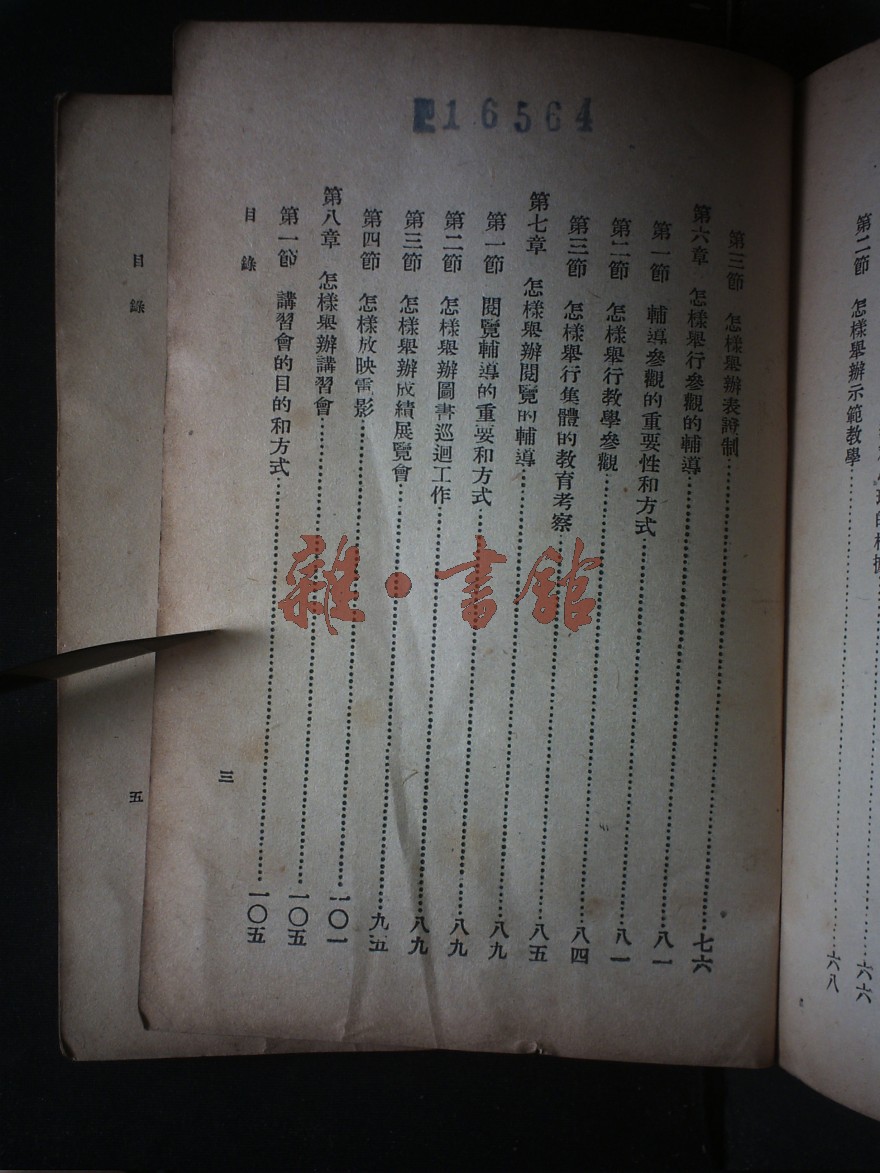 216564
第二節 怎樣舉辦示範教學……六八
六六
第三節 怎樣舉辦表證制……七六
第六章 怎樣舉行參觀的輔導……八一
第一節 輔導參觀的重要性和方式……八一
第二節 怎樣舉行教學參觀……八四
第三節 怎樣舉行集體的教育考察……八五
第七章 怎樣舉辦閱覽的輔導……八九
第一節 閱覽輔導的重要和方式……八九
第二節 怎樣舉辦圖書巡迴工作……八九
第三節 怎樣舉辦成績展覽會……九五
第四節 怎樣放映電影……一〇一
第八章 怎樣舉辦講習會……一〇五
第一節 講習會的目的和方式……一〇五
目錄
三
目錄
五
雜·書館